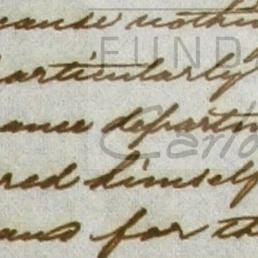 cause nothin
particularly
ance departm
red himself
ans for th
FUND
Carlo